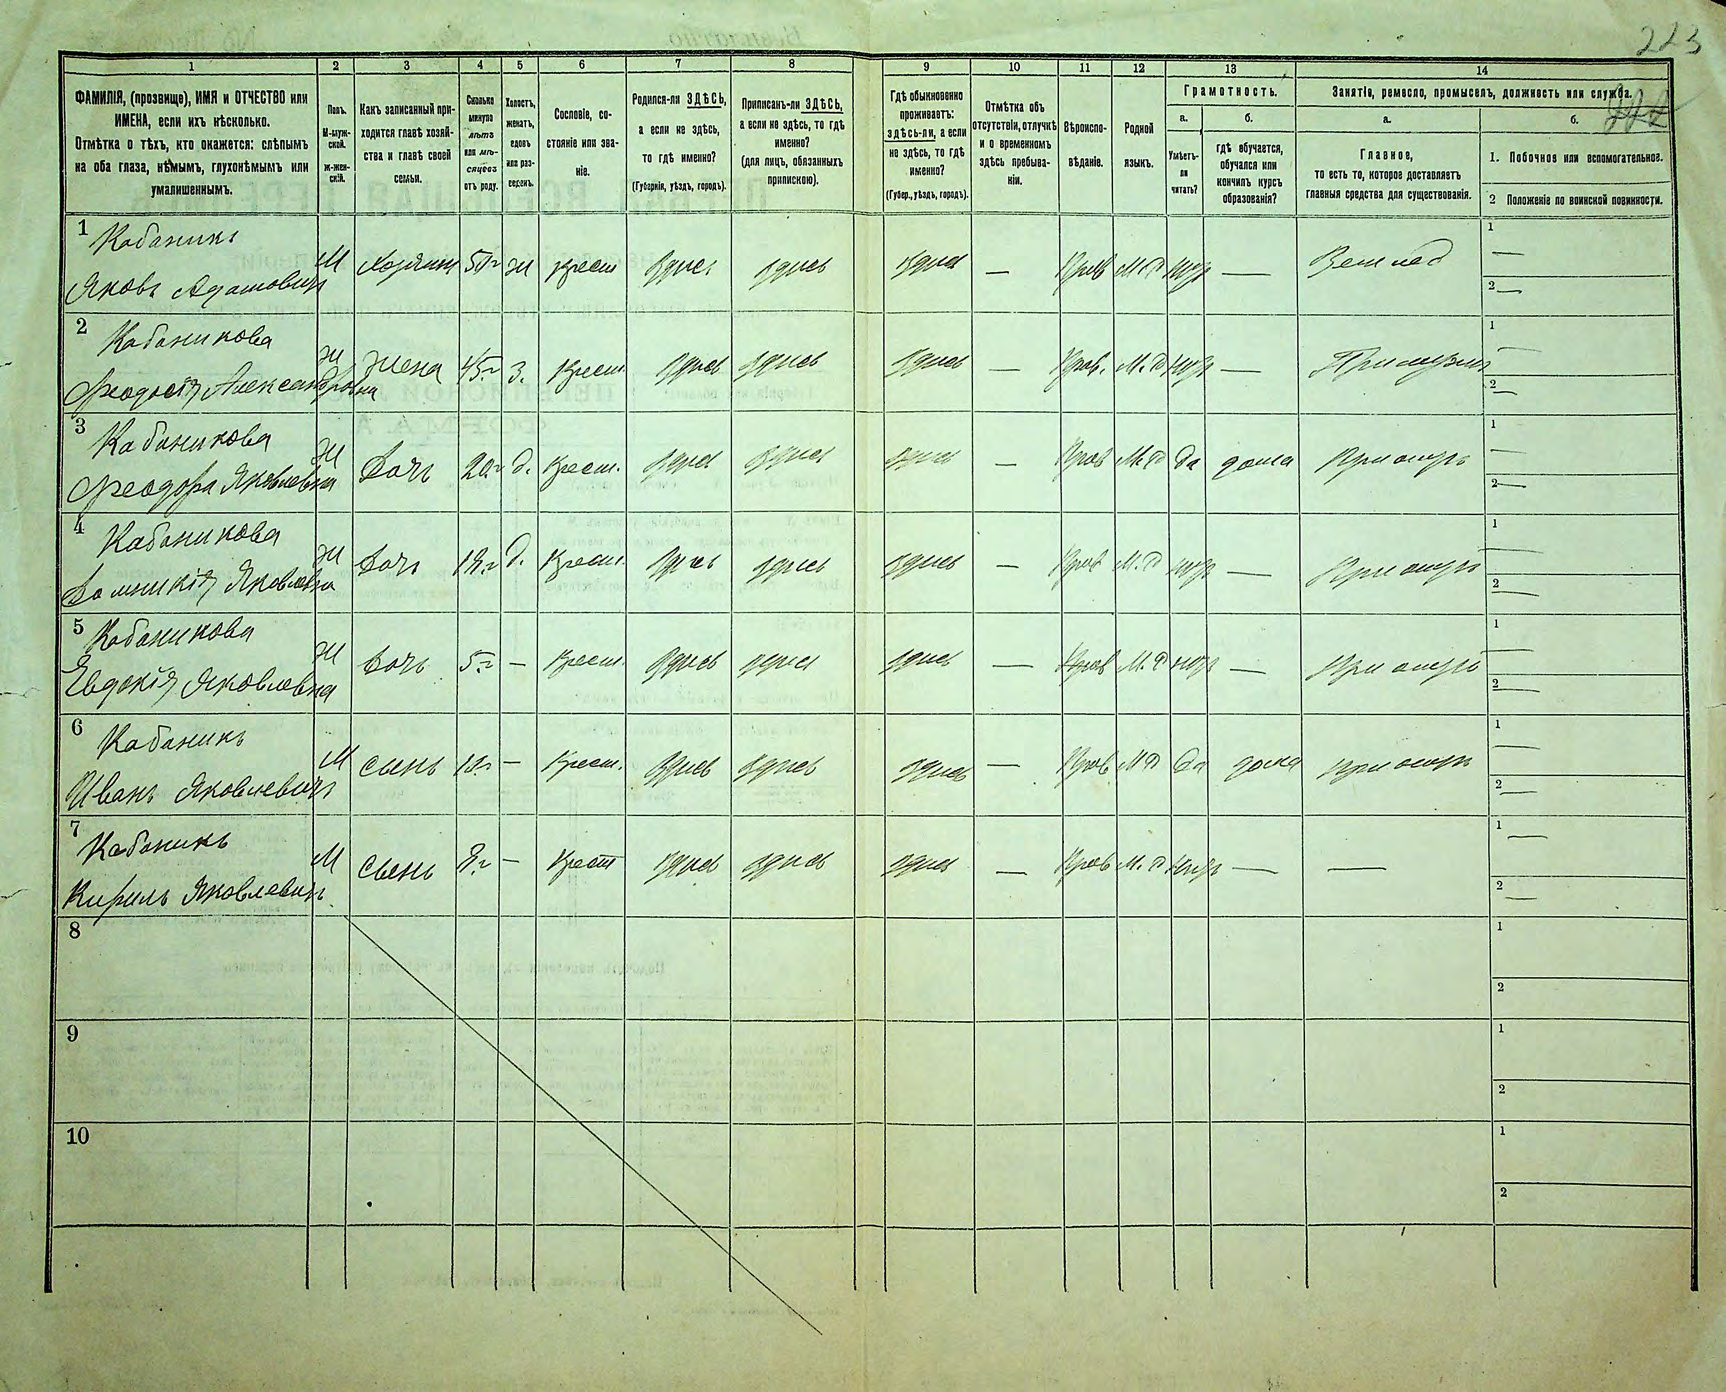 223
1 2 3 4 5 6 7 8 9 10 11 12 13 14
ФАМИЛІЯ, (прозвище), ИМЯ и ОТЧЕСТВО или
ИМЕНА, если ихъ нѣсколько.
Отмѣтка о тѣхъ, кто окажется: слѣпымъ
на оба глаза, нѣмымъ, глухонѣмымъ или
умалишеннымъ.
Полъ.
М-муж-
ской.
Ж-жен-
скій.
Какъ записанный при-
ходится главѣ хозяй-
ства и главѣ своей
семьи.
Сколько
минуло
лѣтъ
или мѣ-
сяцевъ
отъ роду.
Холостъ,
женатъ,
вдовъ
или раз-
веденъ.
Сословіе, со-
стояніе или зва-
ніе.
Родился-ли ЗДѢСЬ,
а если не здѣсь,
то гдѣ именно?
(Губернія, уѣздъ, городъ).
Приписанъ-ли ЗДѢСЬ,
а если не здѣсь, то гдѣ
именно?
(для лицъ, обязанныхъ
припискою).
Гдѣ обыкновенно
проживаетъ:
здѣсь-ли, а если
не здѣсь, то гдѣ
именно?
(Губер., уѣздъ, городъ).
Отмѣтка объ
отсутствіи, отлучкѣ
и о временномъ
здѣсь пребыва-
ніи.
Вѣроиспо-
вѣданіе.
Родной
языкъ.
Грамотность.
а.
Умѣетъ-
ли
читать?
б.
гдѣ обучается,
обучался или
кончилъ курсъ
образованія?
Занятіе, ремесло, промыселъ, должность или служба.
а.
Главное,
то есть то, которое доставляетъ
главныя средства для существованія.
б.
1. Побочное или вспомогательное.
2 Положеніе по воинской повинности.
1 Кабаникъ
Яковъ Адамовичъ М Хозяинъ ж крест здѣсь здѣсь здѣсь — Прав М.Р нѣтъ — 1 — 2 —
2 Кабаникова
Феодосія Александровна ж жена 45 г з. Крест. здѣсь здѣсь здѣсь — Прав. М.Р нѣтъ — 1 — 2 —
3 Кабаникова
Феодора Яковлевна ж дочь 20 г д. крест. здѣсь здѣсь здѣсь — Прав М.Р да дома При отцѣ 1 — 2 —
4 Кабаникова
Домникія Яковлевна ж дочь д. Крест. здѣсь здѣсь здѣсь — Прав М.Р нѣтъ — При отцѣ 1 — 2 —
5 Кабаникова
Евдокія Яковлевна ж дочь 5 г — Крест. здѣсь здѣсь здѣсь — Прав М.Р нѣтъ — При отцѣ 1 — 2 —
6 Кабаникъ
Иванъ Яковлевичъ М сынъ — Крест. здѣсь здѣсь здѣсь — Прав М Р да дома при отцѣ 1 — 2 —
7 Кабаникъ
Кирилъ Яковлевичъ М сынъ 8 г — Крест здѣсь здѣсь здѣсь — Прав М.Р нѣтъ — — 1 — 2 —
8 1 2
9 1 2
10 1 2